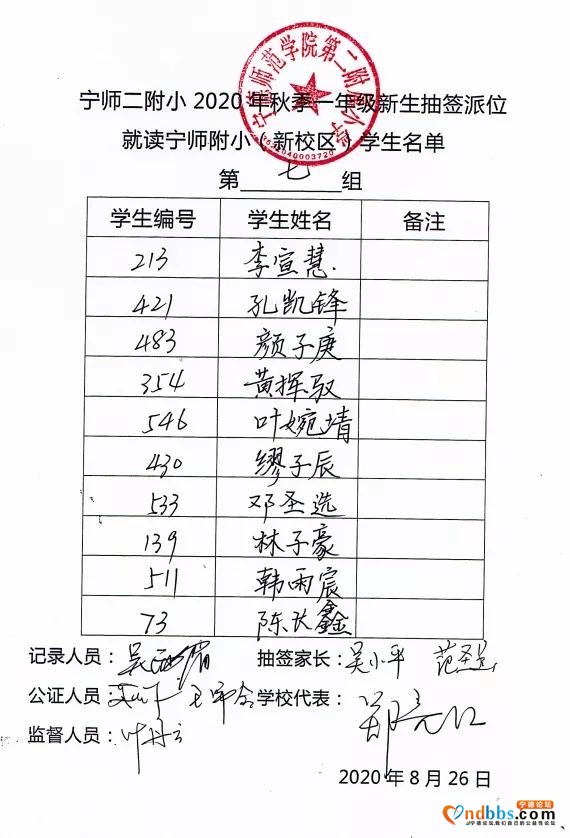 宁德师范学院第二附属小学
宁师二附小 2020 年秋季一年级新生抽签派位
就读宁师附小（新校区）学生名单
3522040003720
第 七 组
学生编号 学生姓名 备注
213 李宣慧
421 孔凯锋
483 颜子庚
354 黄挥驭
546 叶婉靖
430 缪子辰
533 邓圣选
139 林子豪
511 韩雨宸
73 陈长鑫
记录人员： 吴 抽签家长： 吴小平 范圣
公证人员： 学校代表：
监督人员： 叶丹
2020 年 8 月 26 日
宁德论坛
ndbbs.com
宁德论坛,我们自己的公益性论坛